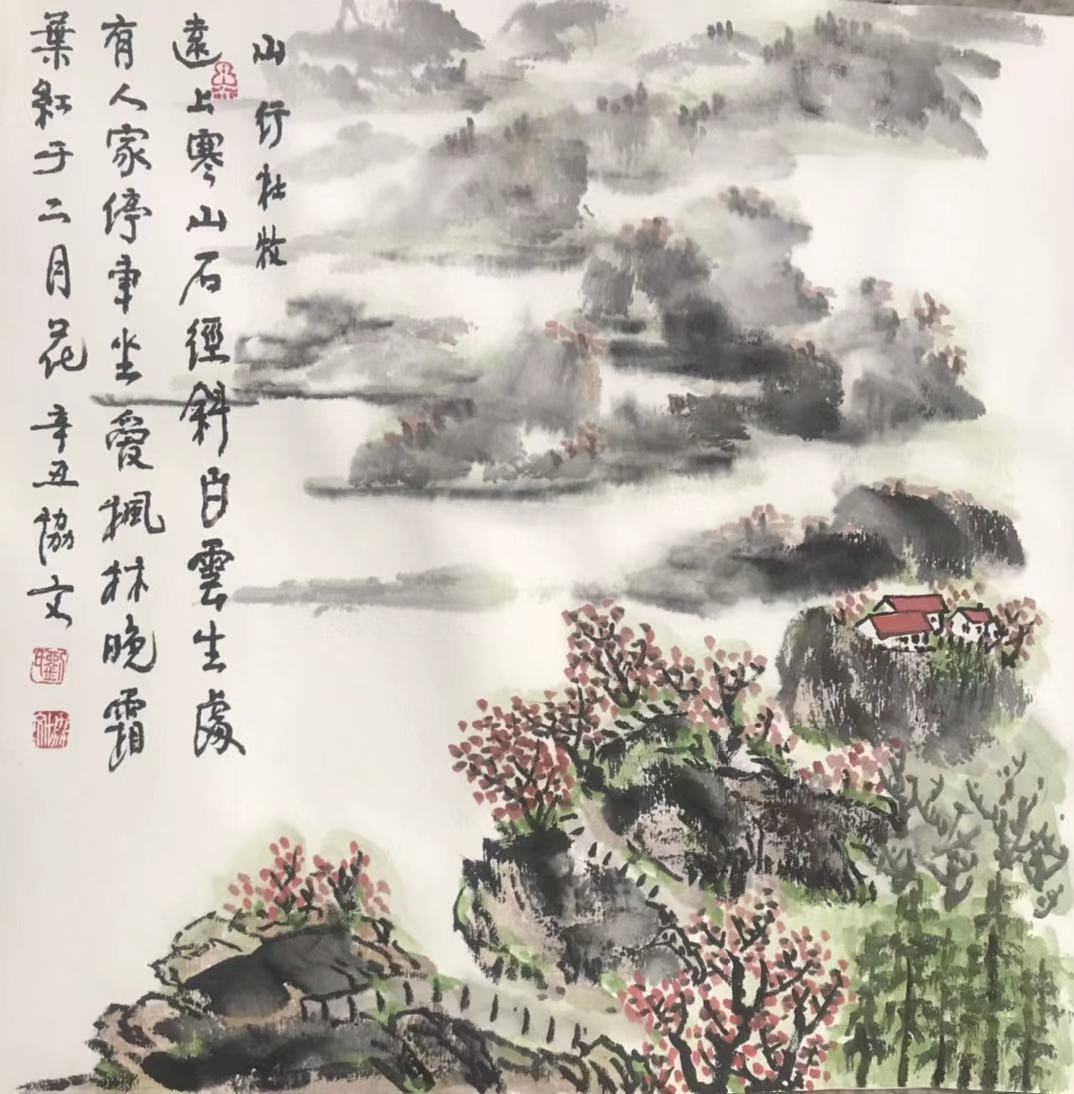 山行杜牧
遠上寒山石徑斜白雲生處
有人家停車坐愛楓林晚霜
葉紅于二月花 辛丑協文